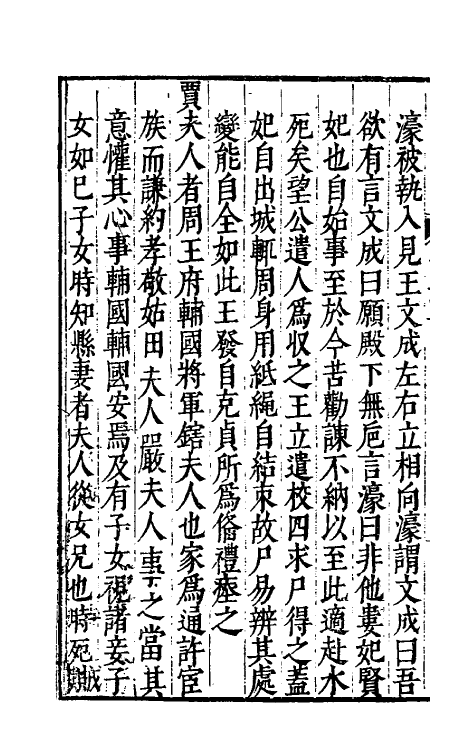 濠被執入見王文成左右立相向濠謂文成曰吾
欲有言文成曰願殿下無卮言濠曰非他婁妃賢
妃也自始事至於今苦勸諫不納以至此適赴水
死矣望公遣人爲収之王立遣校四求尸得之蓋
妃自出城輒周身用紙繩自結束故尸易辨其處
變能自全如此王發自充貞所爲俻禮瘞之
賈夫人者周王府輔國將軍鎋夫人也家爲通許宦
族而謙約孝敬姑田夫人嚴夫人事之當其
意懽其心事輔國輔國安焉及有子女視諸妾子
女如巳子女時知縣妻者夫人從女兄也時死賊